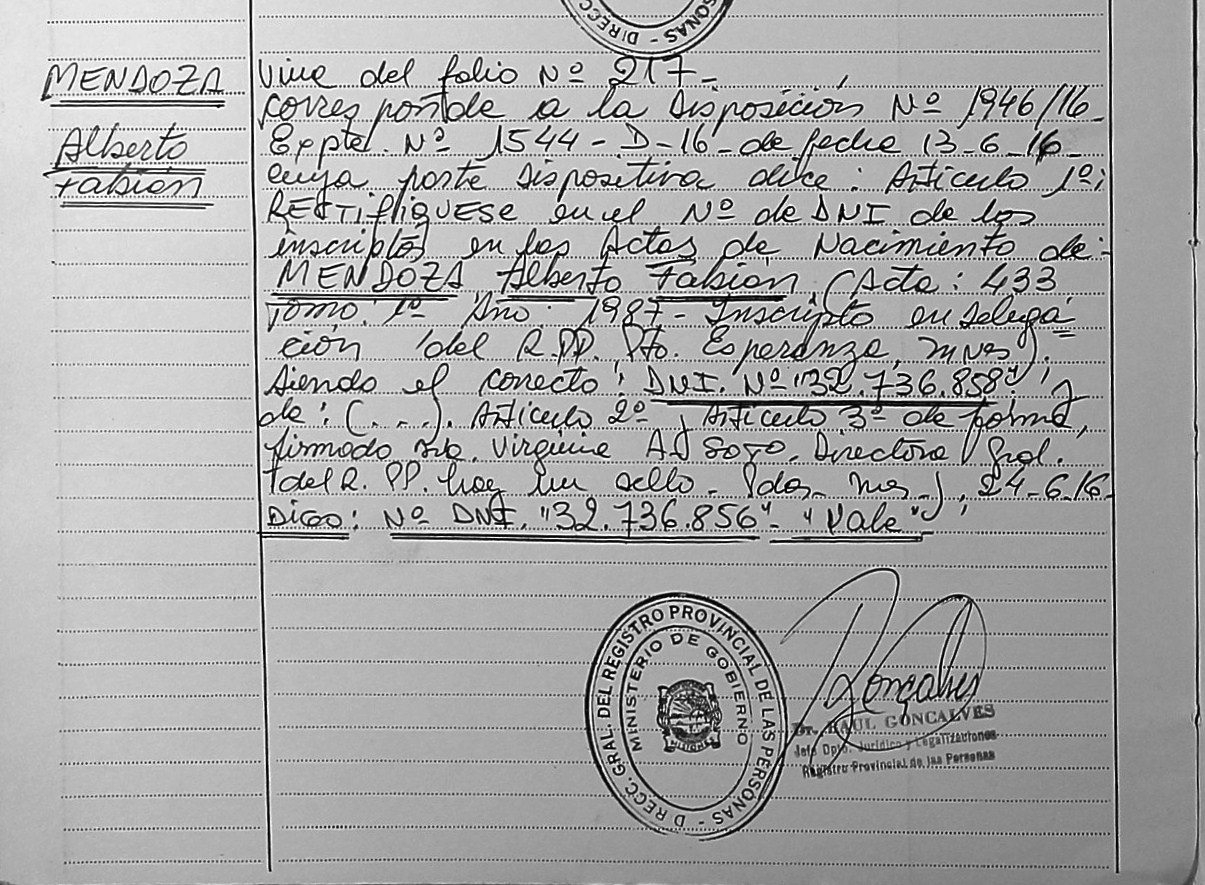 SONAS - DIRECC.
MENDOZA
Alberto
Fabián
Viene del folio Nº 217-
Corresponde a la Disposición Nº 1946/16-
Expte. Nº 1544-D-16- de fecha 13-6-16-
cuya parte Dispositiva dice: Articulo 1º:
RECTIFIQUESE en el Nº de DNI de los
inscriptos en las Actas de Nacimiento de:-
MENDOZA Alberto Fabián (Acta: 433
Tomo: 1º Año: 1987- Inscripto en Delega
ción del R.PP. Pto. Esperanza, Mnes).
Siendo el correcto: DNI. Nº "32.736.858",
de: (...). Articulo 2º, Articulo 3º de forma,
firmado Virginia A SOTO. Directora Gral.
del R. PP. hay un sello- Pdas- Mnes-), 24-6-16-
Digo: Nº DNI. "32.736.856"- "Vale"
DIRECC. GRAL. DEL REGISTRO PROVINCIAL DE LAS PERSONAS -
MINISTERIO DE GOBIERNO
MISIONES
Goncalves
Dr. RAUL GONCALVES
Jefe Dpto. Jurídico y Legalizaciones
Registro Provincial de las Personas